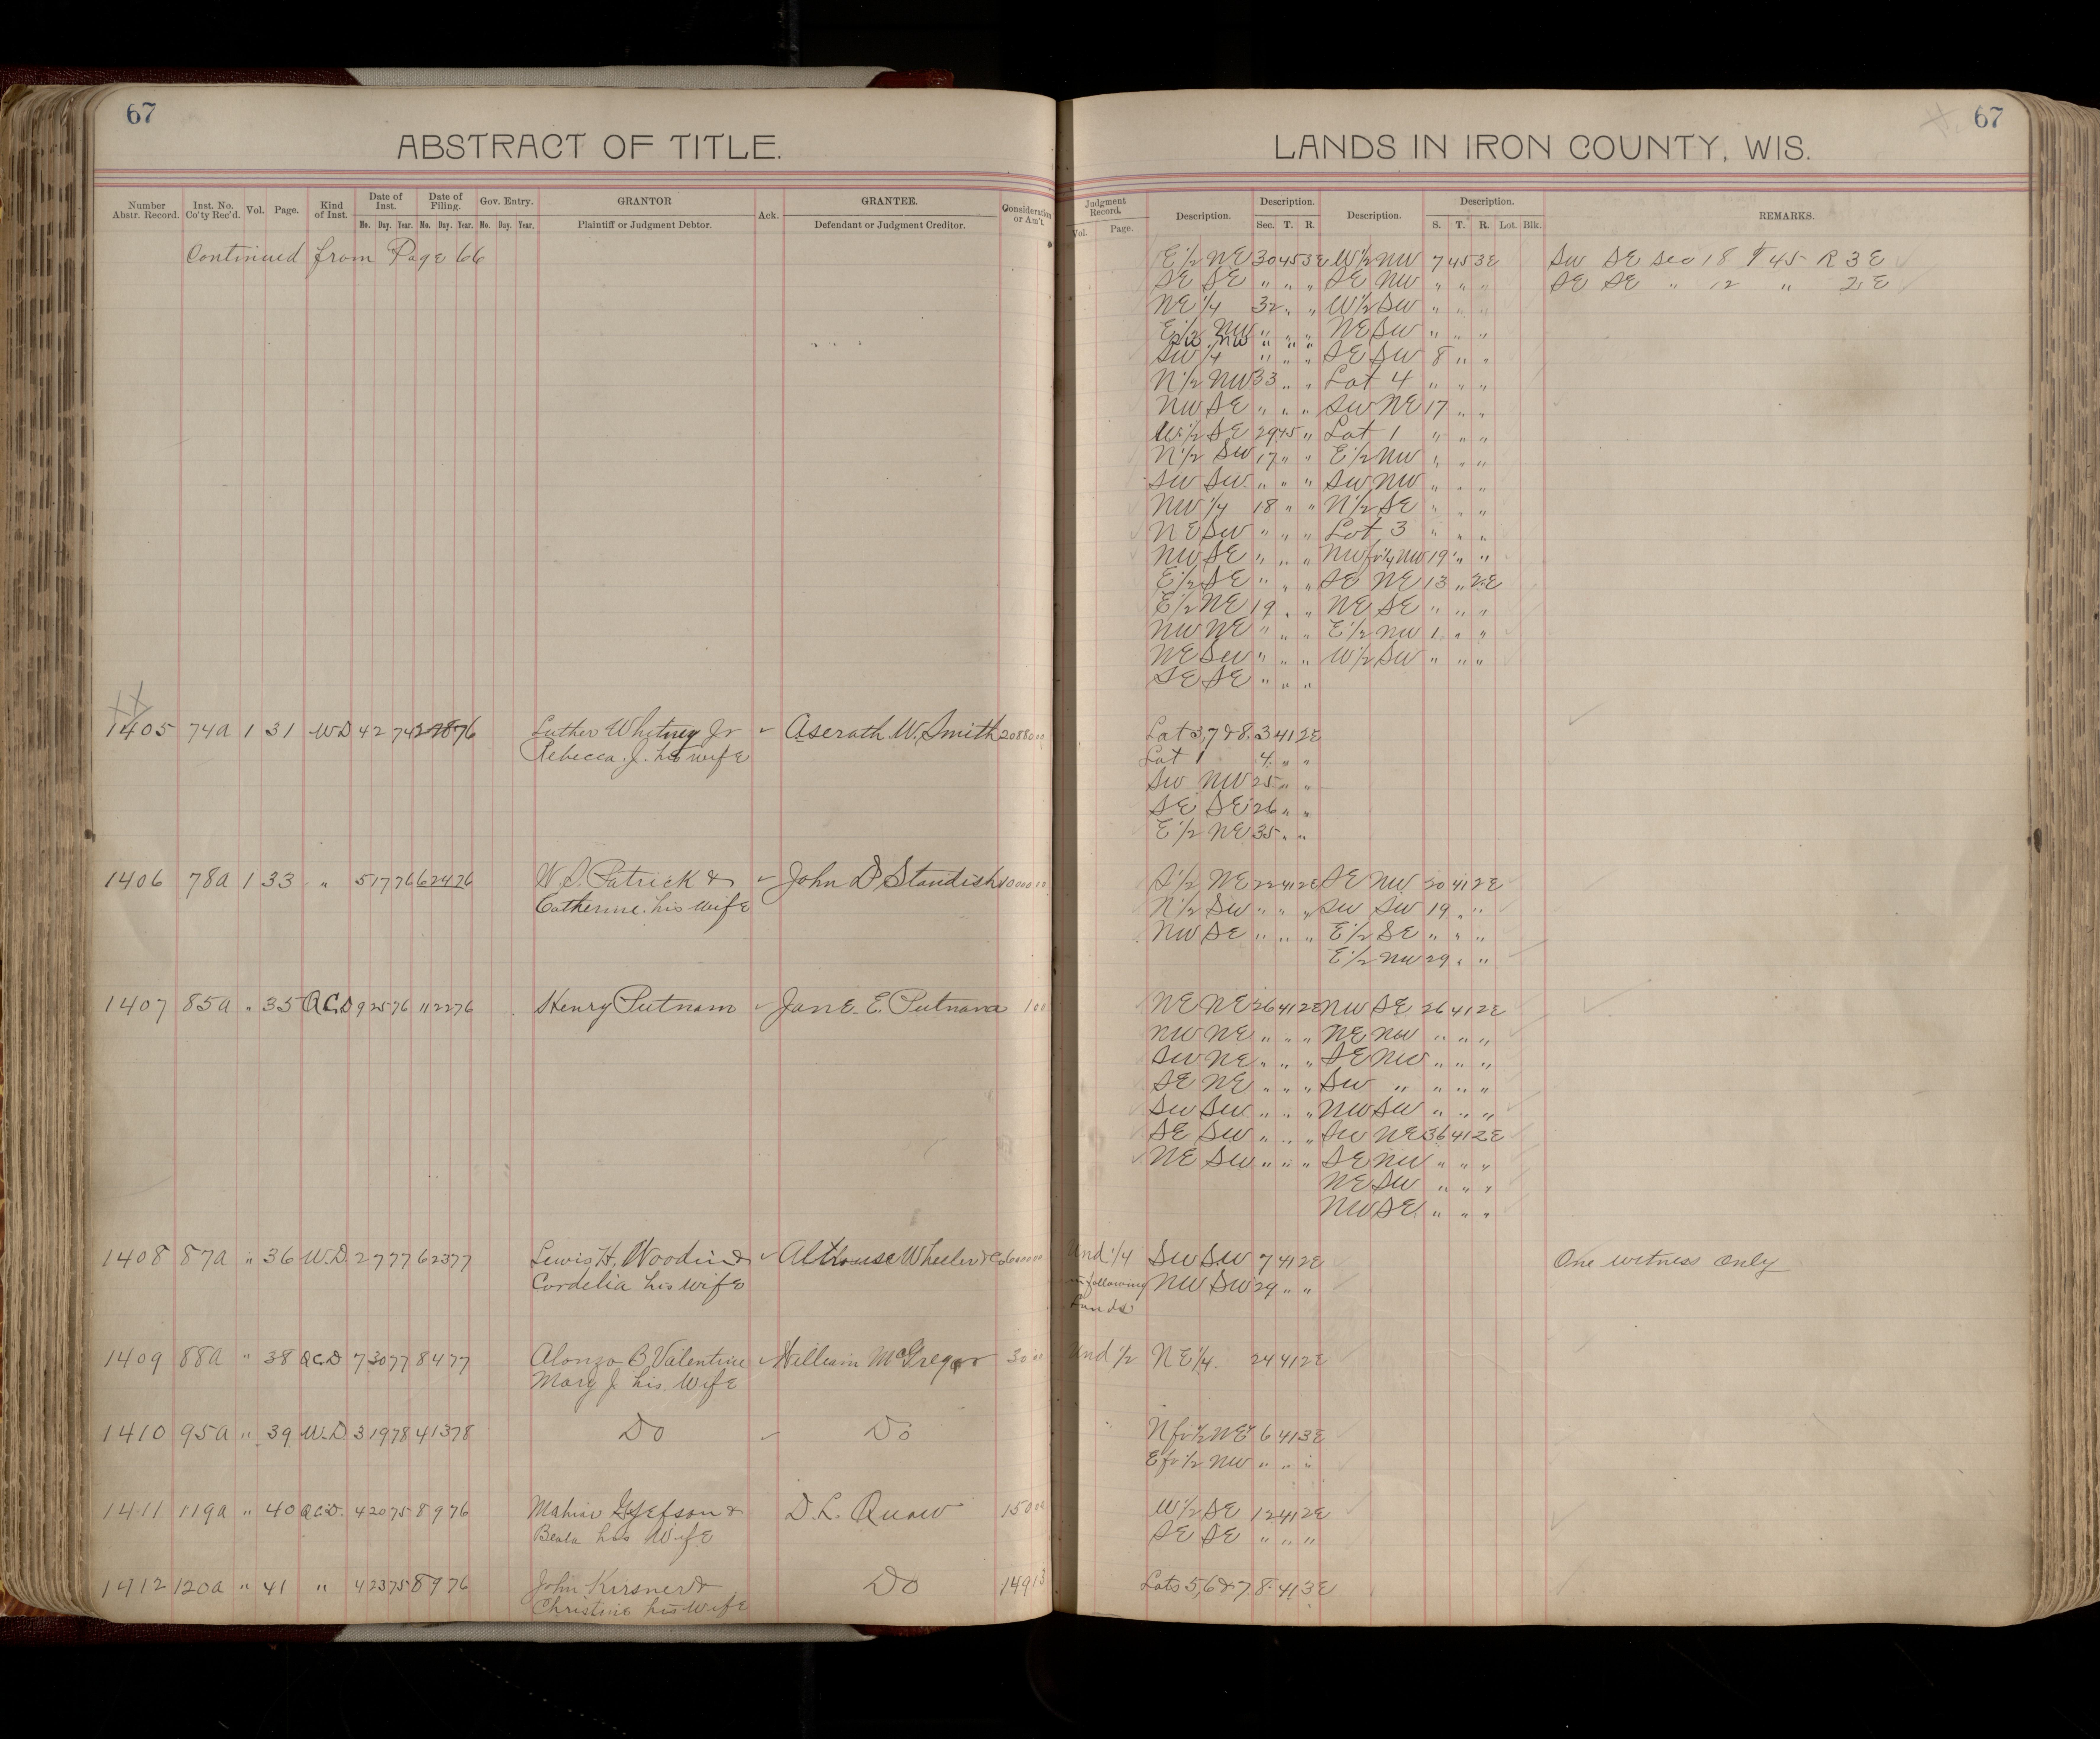 67
ABSTRACT OF TITLE.
Number Abstr. Record. Inst. No. Co'ty Rec'd. Vol. Page. Kind of Inst. Date of Inst. Date of Filing. Gov. Entry. GRANTOR Ack. GRANTEE. Consideration or Am't.
Mo. Day. Year. Mo. Day. Year. Mo. Day. Year. Plaintiff or Judgment Debtor. Defendant or Judgment Creditor.
Continued from Page 66
1405 74a 1 31 WD 4 2 74 Luther Whitney Jr Aserath W. Smith 2088 00
Rebecca. J. his wife
1406 78a 1 33 " 5 17 76 6 24 76 W. S. Patrick & John D Standish 10000 00
Catherine. his wife
1407 85a " 35 Q.C.D 9 25 76 11 22 76 Henry Putnam Jane. E. Putnam 1 00
1408 87a " 36 W.D. 2 7 77 6 23 77 Lewis H. Woodin & Althouse Wheeler & Co 6000 00
Cordelia his wife
1409 88a " 38 QCD 7 30 77 8 4 77 Alonzo B. Valentine William McGregor 30 00
Mary J his. Wife
1410 95a " 39 W.D. 3 19 78 4 13 78 Do Do
1411 119a " 40 QCD. 4 20 75 8 9 76 D. L. Quaw 150 00
Beata his Wife
1412 120a " 41 " 4 23 75 8 9 76 John Kirsner & Do 149 13
Christine his wife
67
LANDS IN IRON COUNTY, WIS.
Judgment Record. Description. Description. Description. Description. REMARKS.
Vol. Page. Sec. T. R. S. T. R. Lot. Blk.
E 1/2 NE 30 45 3E W 1/2 NW 7 45 3E SW SE Sec 18 T 45 R 3E
SE SE " " " SE NW " " " SE SE " 12 " 2E
NE 1/4 32 " " W 1/2 SW " " "
E 1/2 NW " " " NE SW " " "
SW NW " " "
SW 1/4 " " " SE SW 8 " "
N 1/2 NW 33 " " Lot 4 " " "
NW SE " " " SW NE 17 " "
W 1/2 SE 29 45 " Lot 1 " " "
N 1/2 SW 17 " " E 1/2 NW " " "
SW SW " " " SW NW " " "
NW 1/4 18 " " N 1/2 SE " " "
NE SW " " " Lot 3 " " "
NW SE " " " NW fr 1/4 NW 19 " "
E 1/2 SE " " " SE NE 13 " 2E
E 1/2 NE 19 " " NE SE " " "
NW NE " " " E 1/2 NW 1 " "
NE SW " " " W 1/2 SW " " "
SE SE " " "
Lot 3, 7 & 8. 3 41 2E
Lot 1 4 " "
SW NW 25 " "
SE SE 26 " "
E 1/2 NE 35 " "
S 1/2 NE 22 41 2E SE NW 20 41 2E
N 1/2 SW " " " SW SW 19 " "
NW SE " " " E 1/2 SE " " "
E 1/2 NW 29 " "
NE NE 26 41 2E NW SE 26 41 2E
NW NE " " " NE NW " " "
SW NE " " " SE NW " " "
SE NE " " " SW " " " "
SW SW " " " NW SW " " "
SE SW " " " SW NE 36 41 2E
NE SW " " " SE NW " " "
NE SW " " "
NW SE " " "
Und 1/4 SW SW 7 41 2E One witness only
following NW SW 29 " "
Lands
Und 1/2 NE 1/4. 24 41 2E
N fr 1/2 NE 6 41 3E
E fr 1/2 NW " " "
W 1/2 SE 12 41 2E
SE SE " " "
Lots 5, 6 & 7. 8 41 3E